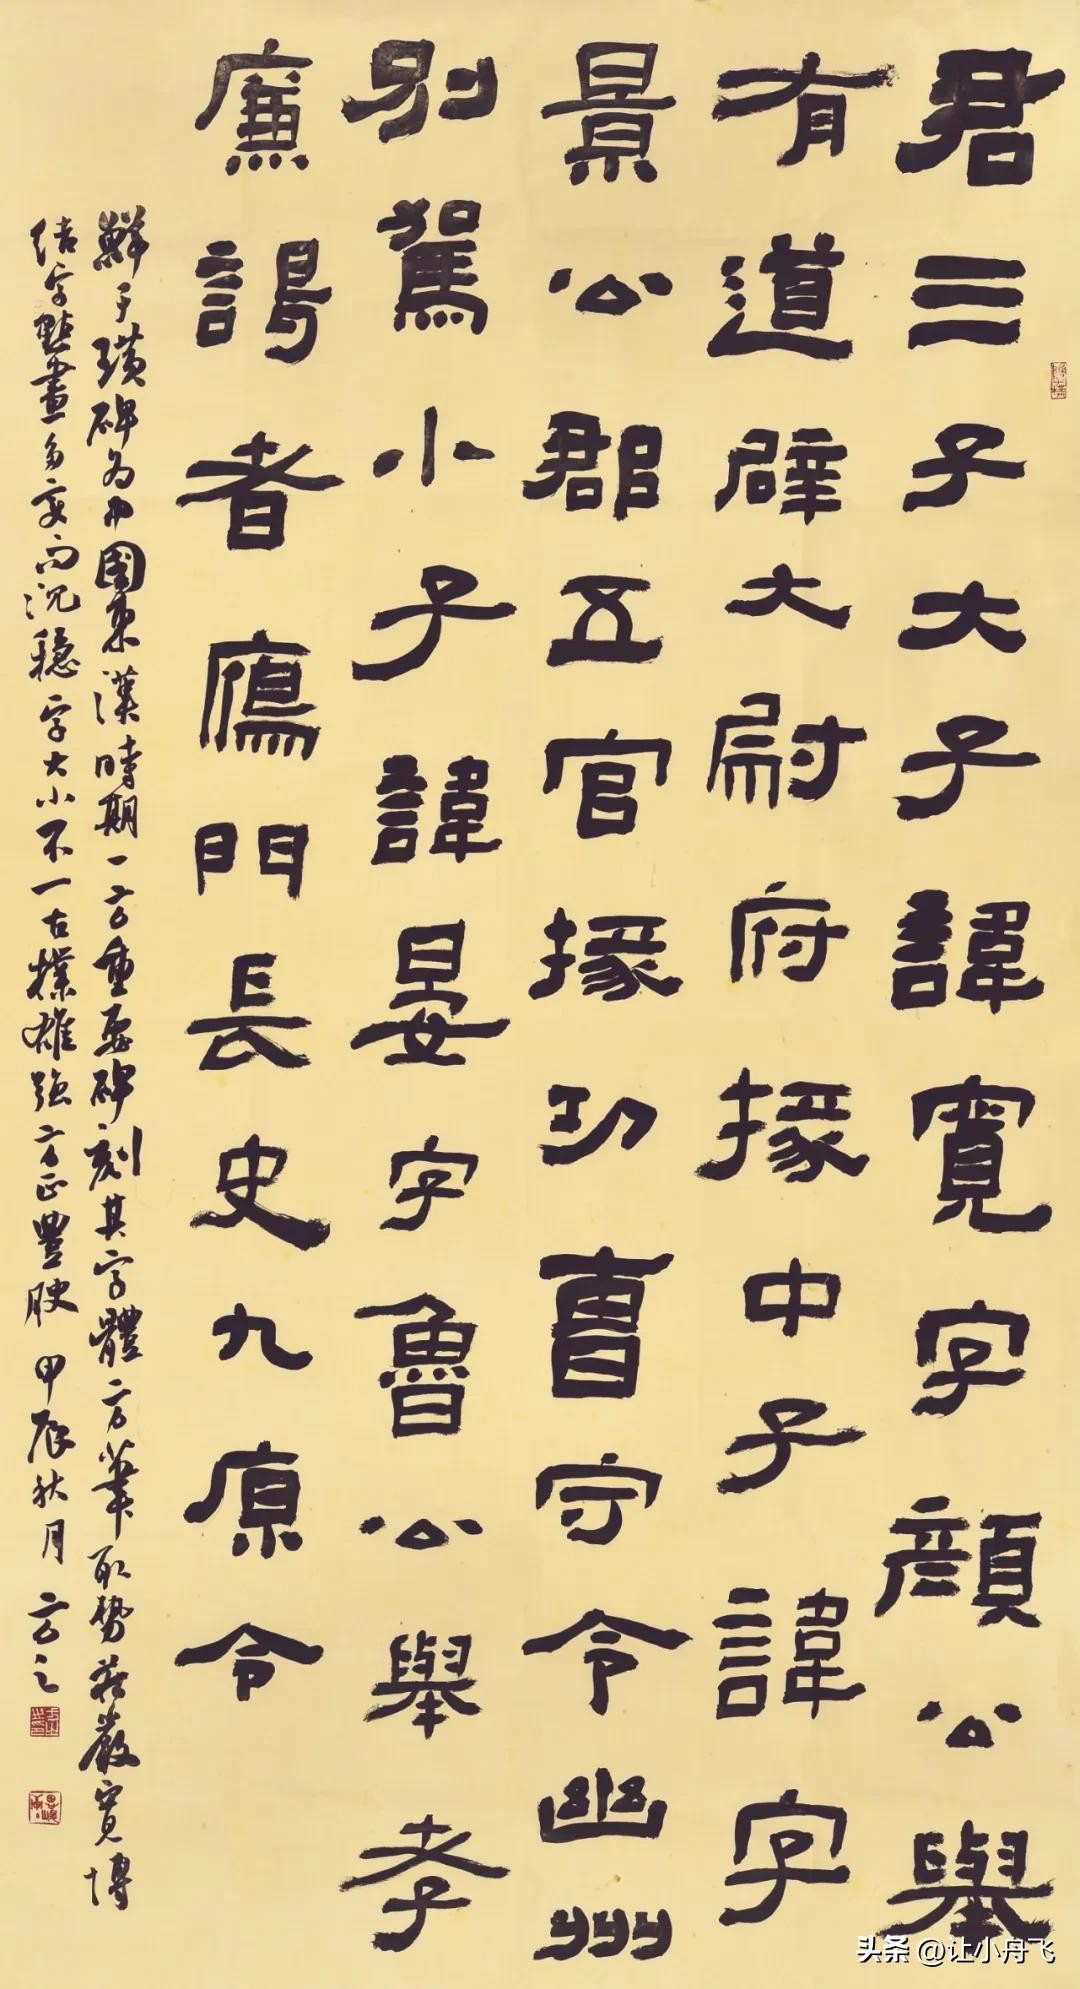 君三子大子諱寬字顏公舉
有道辟大尉府掾中子諱字
景公郡五官掾功曹守令幽州
別駕小子諱晏字魯公舉孝
廉謁者鴈門長史九原令
鮮于璜碑为中國東漢時期一方重要碑刻其字體方筆取勢莊嚴寬博
结字點畫多变而沉穩字大小不一古樸雄强方正豐腴 甲辰秋月 方之
头条 @让小舟飞